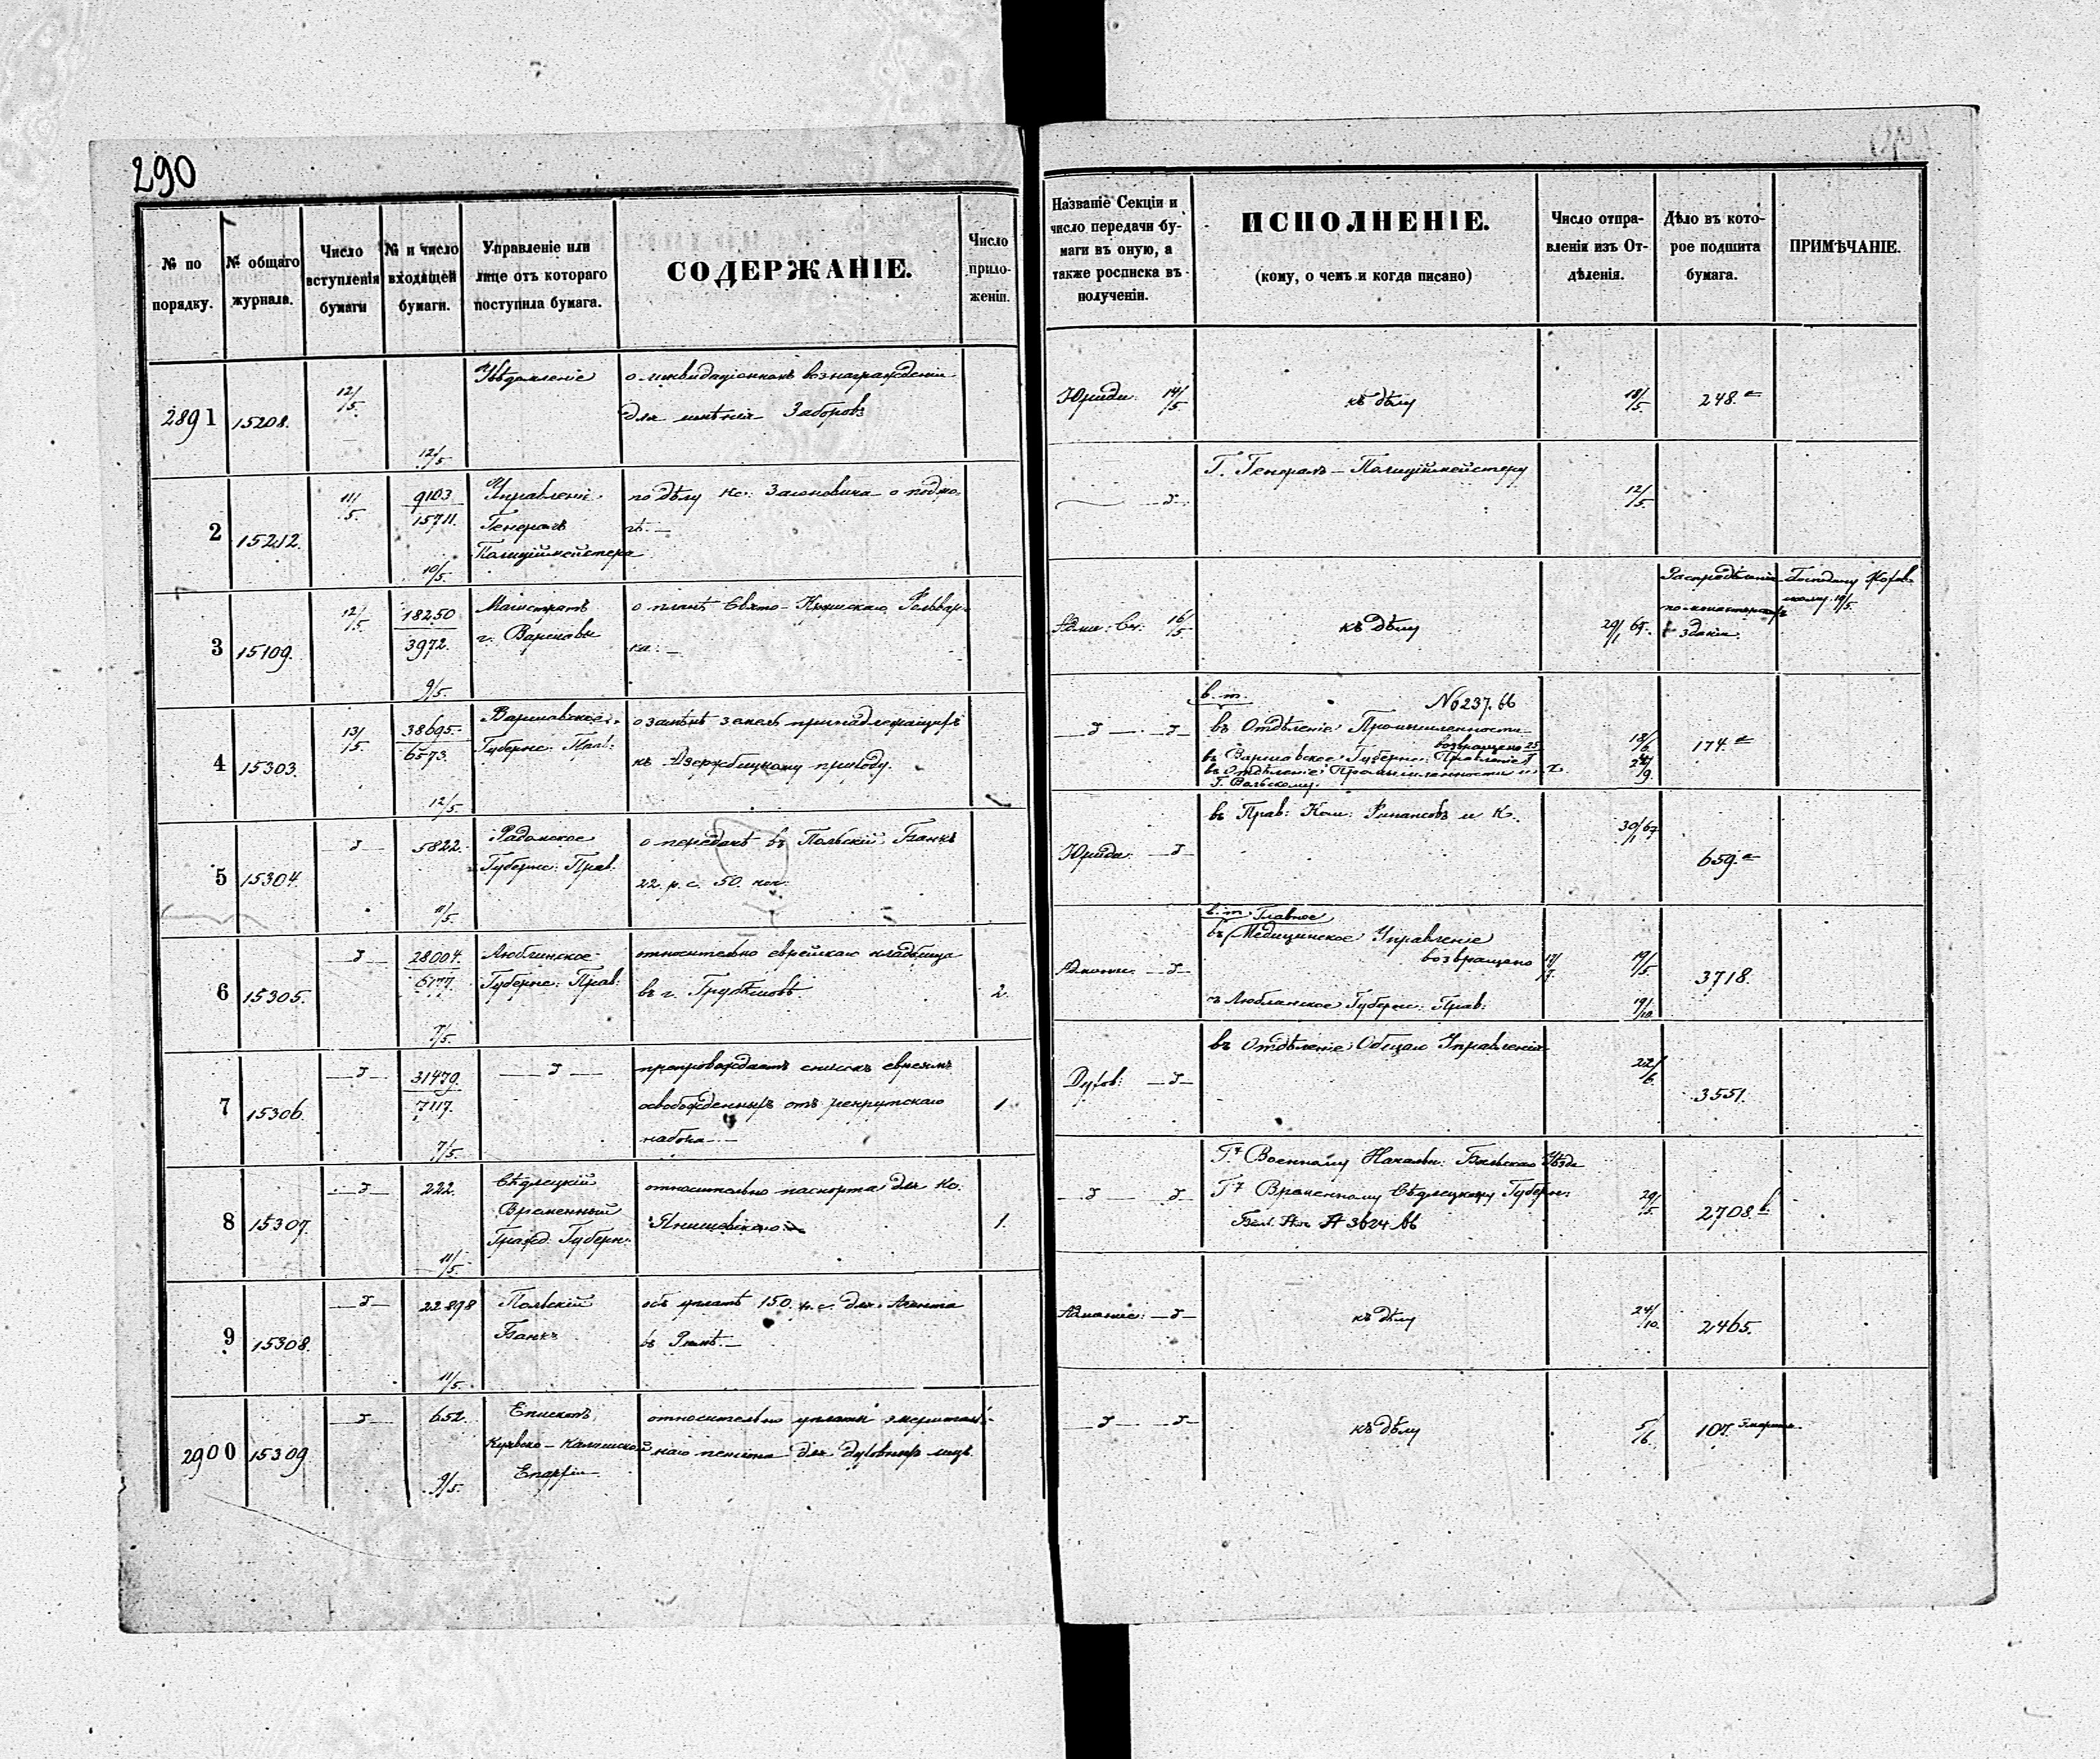 290
№ по порядку.
№ общаго журнала.
Число вступленія бумаги
№ и число входящей бумаги.
Управленіе или лице отъ котораго поступила бумага.
СОДЕРЖАНІЕ.
Число приложеніи.
Названіе Секціи и число передачи бумаги въ оную, а также росписка въ полученіи.
ИСПОЛНЕНІЕ.
(кому, о чемъ и когда писано)
Число отправленія изъ Отдѣленія.
Дѣло въ которое подшита бумага.
ПРИМѢЧАНІЕ.
2891 15208. 12/5. 12/5.
Увѣдомленіе
о ликвидаціонномъ вознагражденіи
для имѣнія Заборовъ
Юриди: 14/5
къ дѣлу
18/5. 248.а
2 15212. 11/5. 9103 15711. 10/5.
Управленіе
Генералъ
Полицiймейстера
по дѣлу Кс:
Г. Генералъ-Полицiймейстеру
12/5.
3 15109. 12/5. 18250 3972. 9/5.
Магистратъ
г. Варшавы
о планѣ Свято-Крыжскаго Фольвар-
ка.
16/5
къ дѣлу
29/1 67.
зданія.
4 15303. 13/5. 38695. 6573. 12/5.
Варшавское
Губернс: Прав:
о замѣнѣ земель принадлежащихъ
къ Дзержбицкому приходу.
в. т. № 237.66
въ Отдѣленіе Промышленности
возвращено 25
въ Варшавское Губернс: Правленіе
въ Отдѣленіе Промышленности и
Г. Вольскому.
18/6 174.а
5 15304. 5822. 11/5.
Радомское
Губернс: Прав.
о передачѣ въ Польскій Банкъ
22. р. с. 50. коп.
Юриди:
въ Прав: Ком: Финансовъ и К.
30/1 67 659.а
6 15305. 28004. 6177. 7/5.
Люблинское
Губернс: Прав:
относительно еврейскаго кладбища
въ г. Грубѣшовѣ.
2.
в. т. Главное
въ Медицинское Управленіе
возвращено
въ Люблинское Губернс: Прав:
19/5. 19/10. 3718.
7 15306. 31479. 7117. 7/5.
препровождаетъ списокъ евреямъ
освобожденныхъ отъ рекрутскаго
набора
1.
Духов:
въ Отдѣленіе Общаго Управленія
22/6. 3551.
8 15307. 222. 11/5.
Сѣдлецкій
Временный
Гражд: Губерн:
относительно паспорта для Кс.
Янишевскаго
1.
Г. Военному Начальн: Бѣльскаго Уѣзда
Г. Временному Сѣдлецкому Губерн:
№ 3624.66
29/5. 2708.
9 15308. 22898 11/5.
Польскій
Банкъ
объ уплатѣ 150. р. с. для Агента
въ Римѣ.
къ дѣлу
24/10. 2465.
2900 15309. 652. 9/5.
Епископъ
Куявско-Калишской
Епархіи
относительно уплаты эмериталь-
наго пенсіона для духовныхъ лицъ
къ дѣлу
5/6. 107.